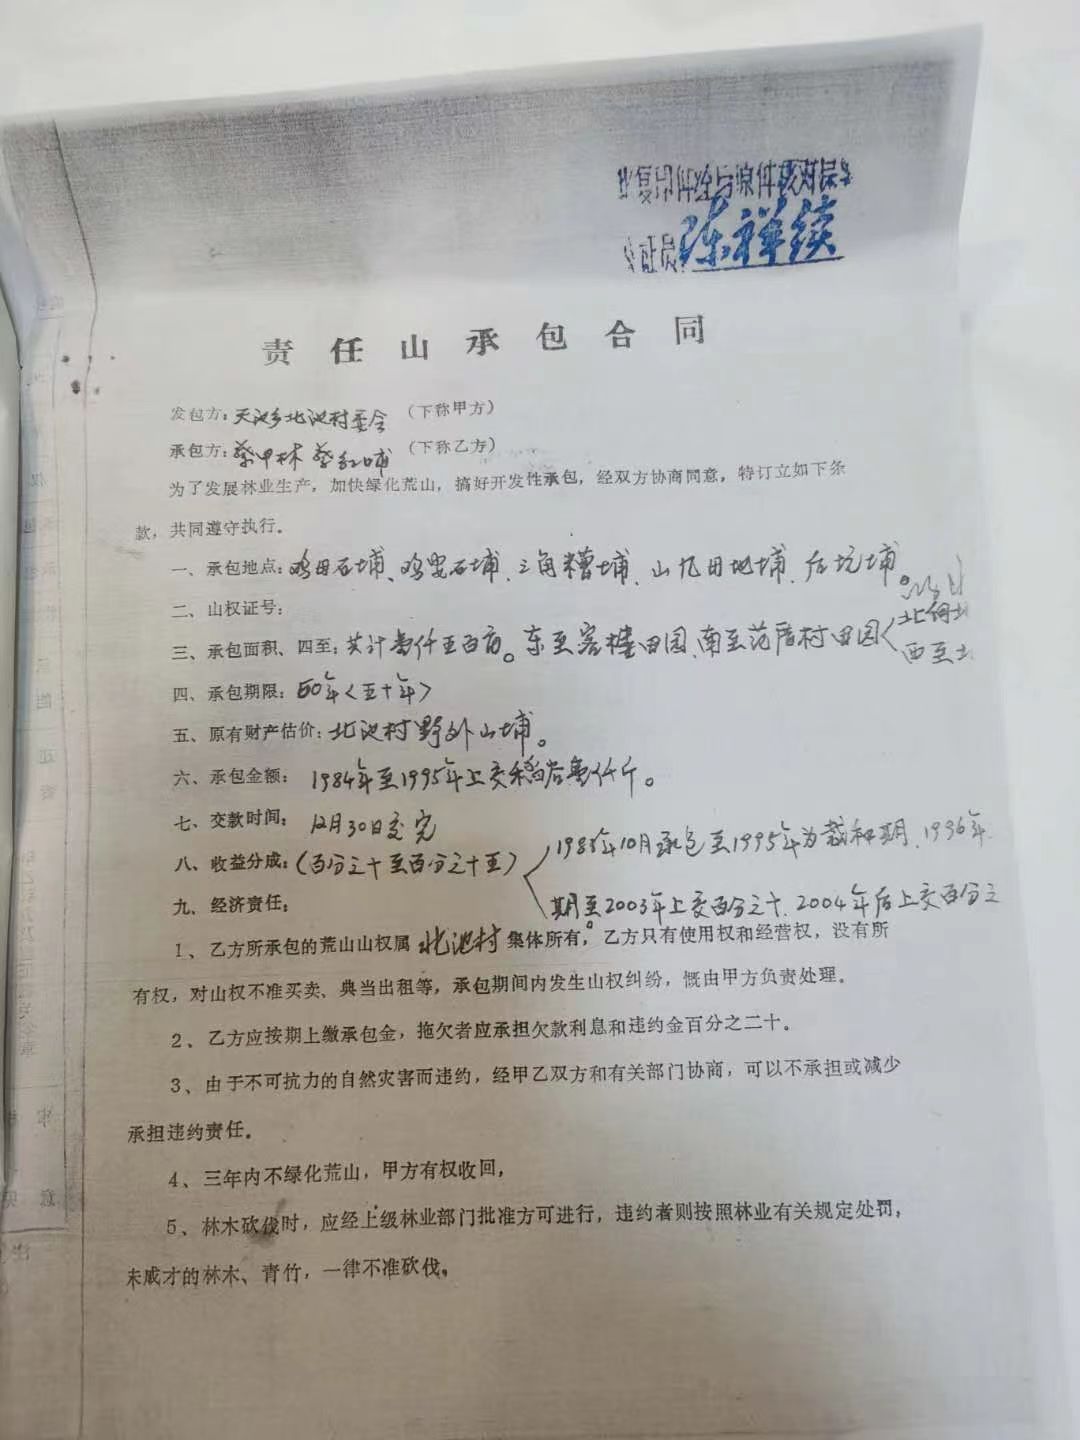 复印件经与原件核对
证员 陈祥续
责任山承包合同
发包方：天池乡北池村委会（下称甲方）
承包方：蔡甲林 蔡红哺（下称乙方）
为了发展林业生产，加快绿化荒山，搞好开发性承包，经双方协商同意，特订立如下条
款，共同遵守执行。
一、承包地点：鸡母石埔、鸡 石埔、三角糟埔、山 田地埔、后坑埔。
二、山权证号：
三、承包面积、四至：共计 仟五百亩。东至 田园、南至 村田园 北
西至
四、承包期限：50年〈五十年〉
五、原有财产估价：北池村野外山埔。
六、承包金额：1984年至1995年上交稻谷 仟斤。
七、交款时间：12月30日交完
八、收益分成：（百分之十至百分之十五） 年10月承包至1995年为栽种期、1996年
期至2003年上交百分之十、2004年后上交百分之
九、经济责任：
1、乙方所承包的荒山山权属北池村集体所有，乙方只有使用权和经营权，没有所
有权，对山权不准买卖、典当出租等，承包期间内发生山权纠纷，慨由甲方负责处理。
2、乙方应按期上缴承包金，拖欠者应承担欠款利息和违约金百分之二十。
3、由于不可抗力的自然灾害而违约，经甲乙双方和有关部门协商，可以不承担或减少
承担违约责任。
4、三年内不绿化荒山，甲方有权收回，
5、林木砍伐时，应经上级林业部门批准方可进行，违约者则按照林业有关规定处罚，
未成才的林木、青竹，一律不准砍伐。